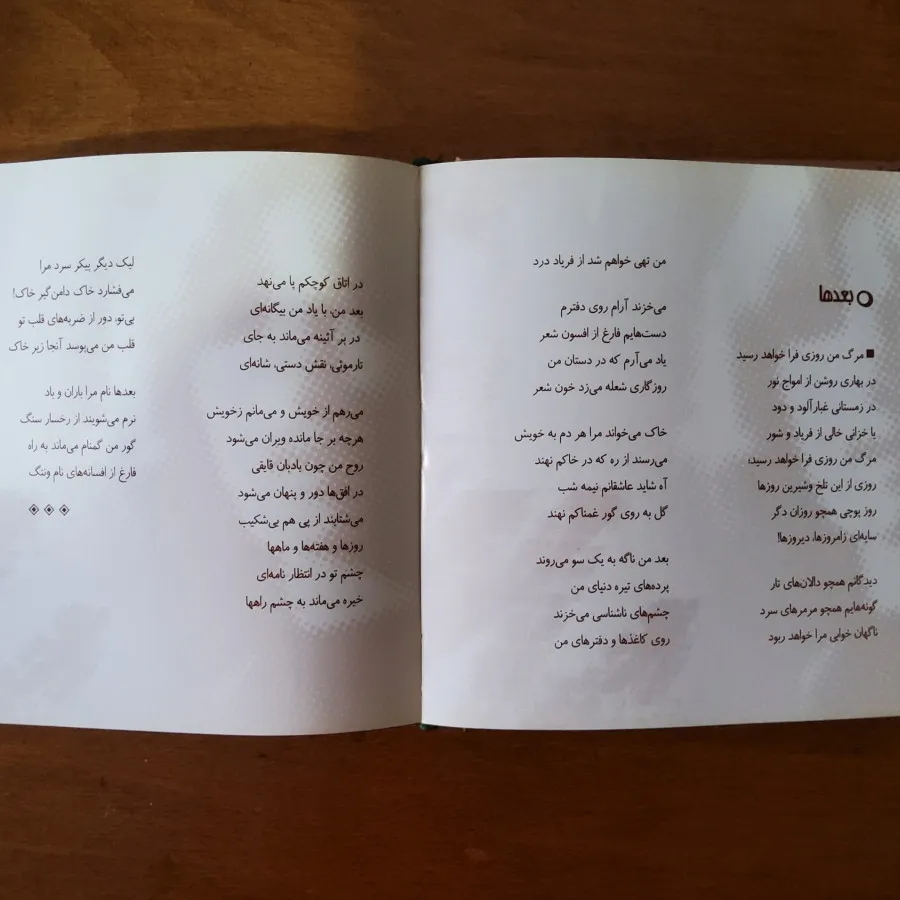 بعدها
مرگ من روزی فرا خواهد رسید
در بهاری روشن از امواج نور
در زمستانی غبارآلود و دود
یا خزانی خالی از فریاد و شور
مرگ من روزی فرا خواهد رسید؛
روزی از این تلخ وشیرین روزها
روز پوچی همچو روزان دگر
سایه‌ای زامروزها، دیروزها!
دیدگانم همچو دالان‌های تار
گونه‌هایم همچو مرمرهای سرد
ناگهان خوابی مرا خواهد ربود
من تهی خواهم شد از فریاد درد
می‌خزند آرام روی دفترم
دست‌هایم فارغ از افسون شعر
یاد می‌آرم که در دستان من
روزگاری شعله می‌زد خون شعر
خاک می‌خواند مرا هر دم به خویش
می‌رسند از ره که در خاکم نهند
آه شاید عاشقانم نیمه شب
گل به روی گور غمناکم نهند
بعد من ناگه به یک سو می‌روند
پرده‌های تیره دنیای من
چشم‌های ناشناسی می‌خزند
روی کاغذها و دفترهای من
در اتاق کوچکم پا می‌نهد
بعد من، با یاد من بیگانه‌ای
در بر آئینه می‌ماند به جای
تارموئی، نقش دستی، شانه‌ای
می‌رهم از خویش و می‌مانم زخویش
هرچه بر جا مانده ویران می‌شود
روح من چون بادبان قایقی
در افق‌ها دور و پنهان می‌شود
می‌شتابند از پی هم بی‌شکیب
روزها و هفته‌ها و ماهها
چشم تو در انتظار نامه‌ای
خیره می‌ماند به چشم راهها
لیک دیگر پیکر سرد مرا
می‌فشارد خاک دامن‌گیر خاک!
بی‌تو، دور از ضربه‌های قلب تو
قلب من می‌پوسد آنجا زیر خاک
بعدها نام مرا باران و باد
نرم می‌شویند از رخسار سنگ
گور من گمنام می‌ماند به راه
فارغ از افسانه‌های نام وننگ